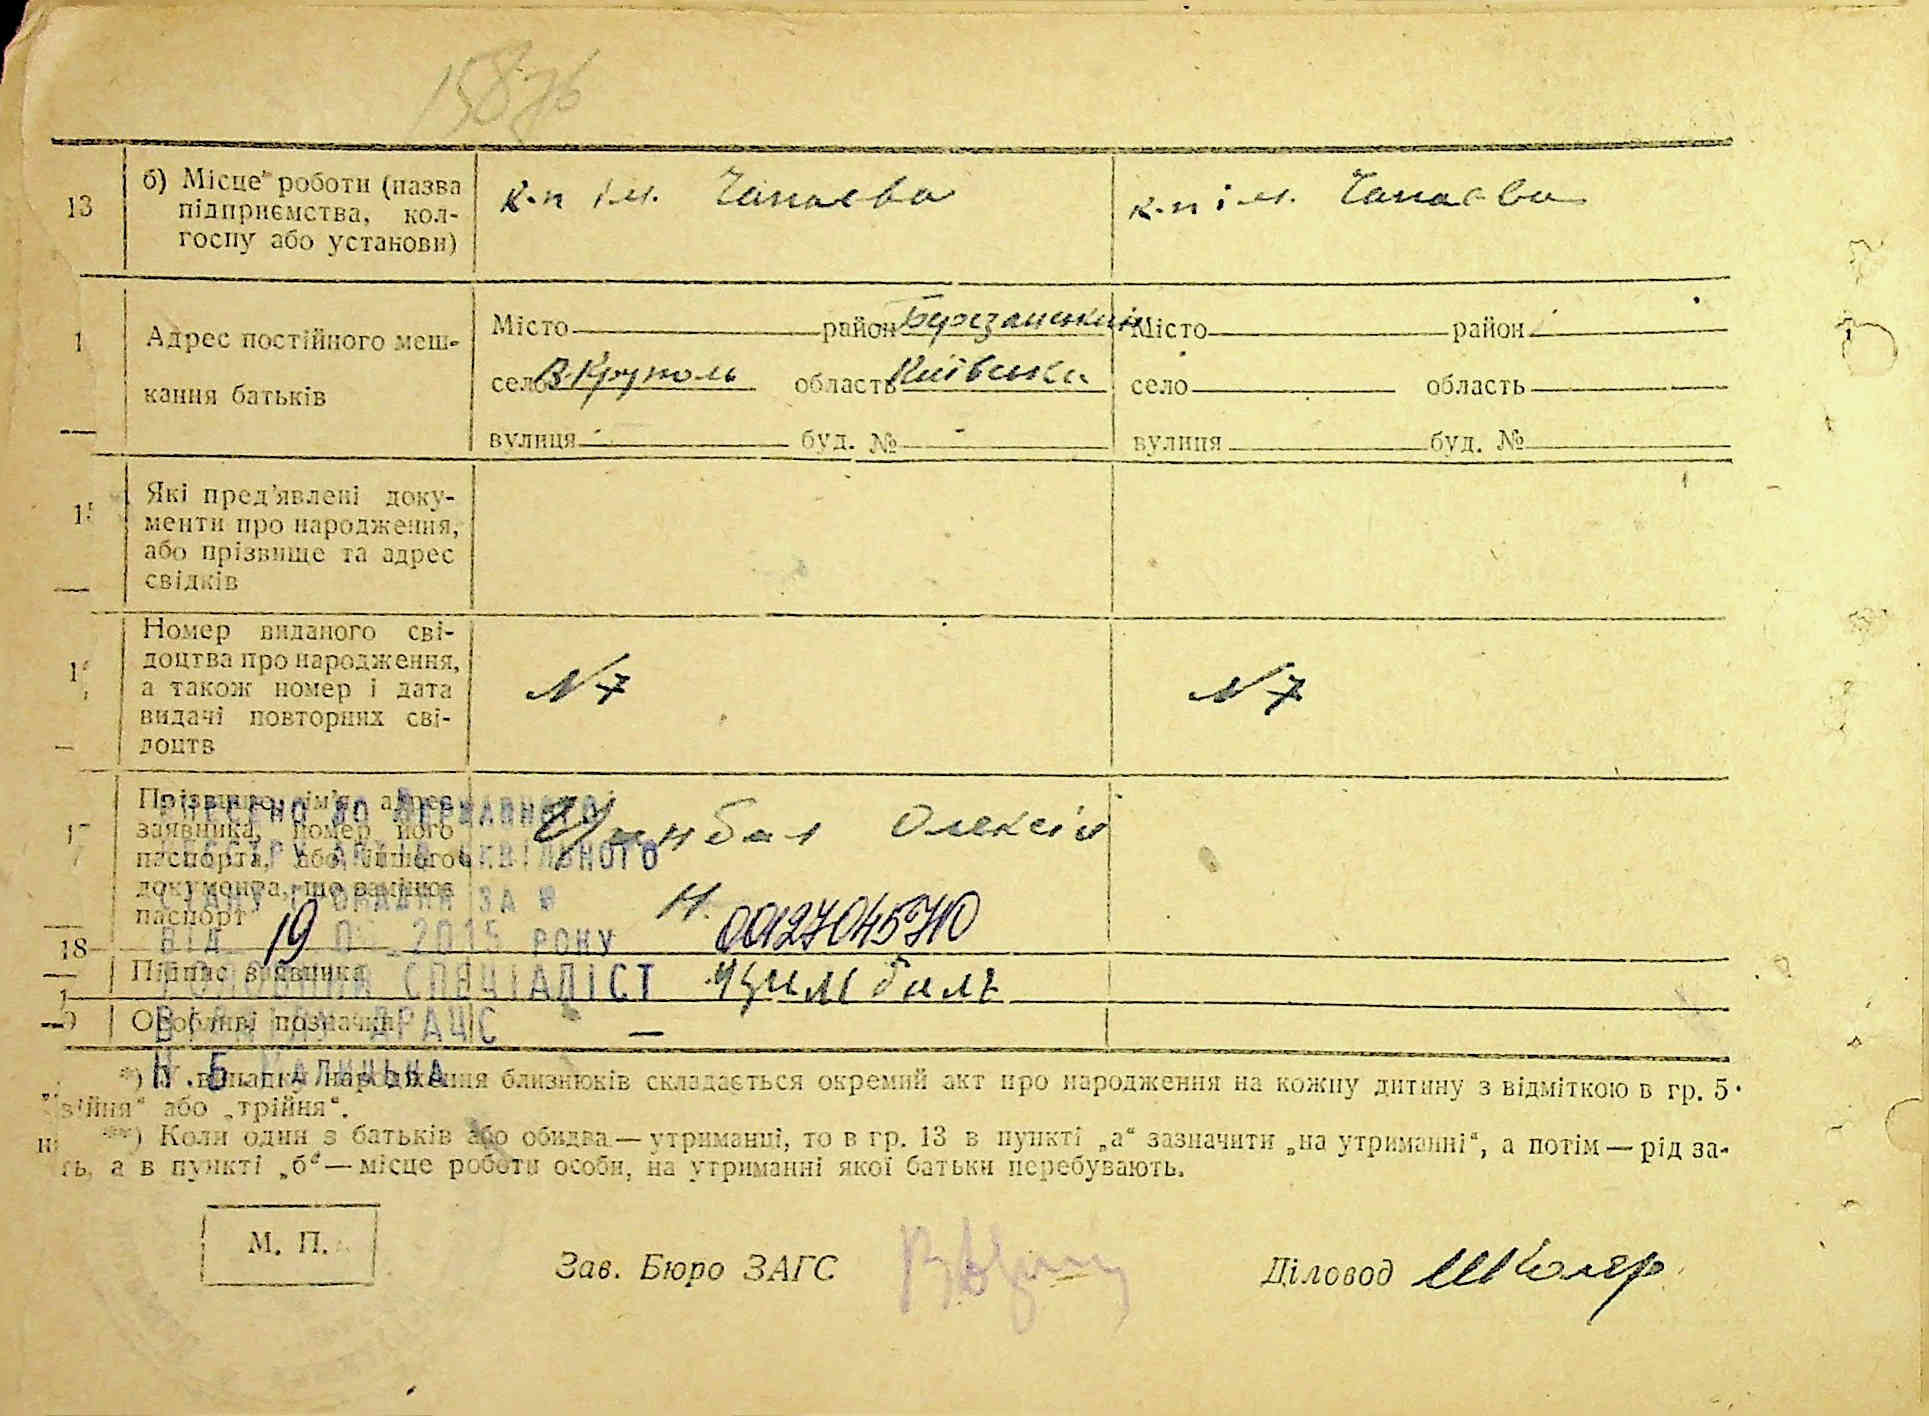 13
б) Місце роботи (назва
підприємства, кол-
госпу або установи)
к-п ім. Чапаєва
к-п ім. Чапаєва
Адрес постійного меш-
кання батьків
Місто район Березанський
село В-Круполь область Київська
вулиця - буд. № -
Місто район
село область
вулиця буд. №
Які пред'явлені доку-
менти про народження,
або прізвище та адрес
свідків
Номер виданого сві-
доцтва про народження,
а також номер і дата
видачі повторних сві-
доцтв
N 7
N 7
17
Прізвище, ім'я, адрес
заявника, номер його
паспорта, або іншого
документа, що замінює
паспорт
Цимбал Олексій
Н.
00127045710
18
Підпис заявника
Цимбал
19
Особливі позначки
—
ВНЕСЕНО ДО ДЕРЖАВНОГО
РЕЄСТРУ АКТІВ ЦИВІЛЬНОГО
СТАНУ ГРОМАДЯН ЗА №
ВІД 19 2015 РОКУ
ГОЛОВНИЙ СПЕЦІАЛІСТ
ВІДДІЛУ ДРАЦС
*) У випадку народження близнюків складається окремий акт про народження на кожну дитину з відміткою в гр. 5
„двійня“ або „трійня“.
**) Коли один з батьків або обидва — утриманці, то в гр. 13 в пункті „а“ зазначити „на утриманні“, а потім — рід за-
ть, а в пункті „б“ — місце роботи особи, на утриманні якої батьки перебувають.
М. П.
Зав. Бюро ЗАГС
Діловод Школяр